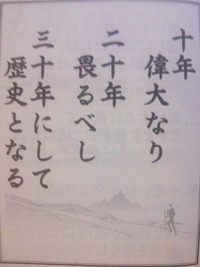 十年
偉大なり
二十年
畏るべし
三十年にして
歴史となる